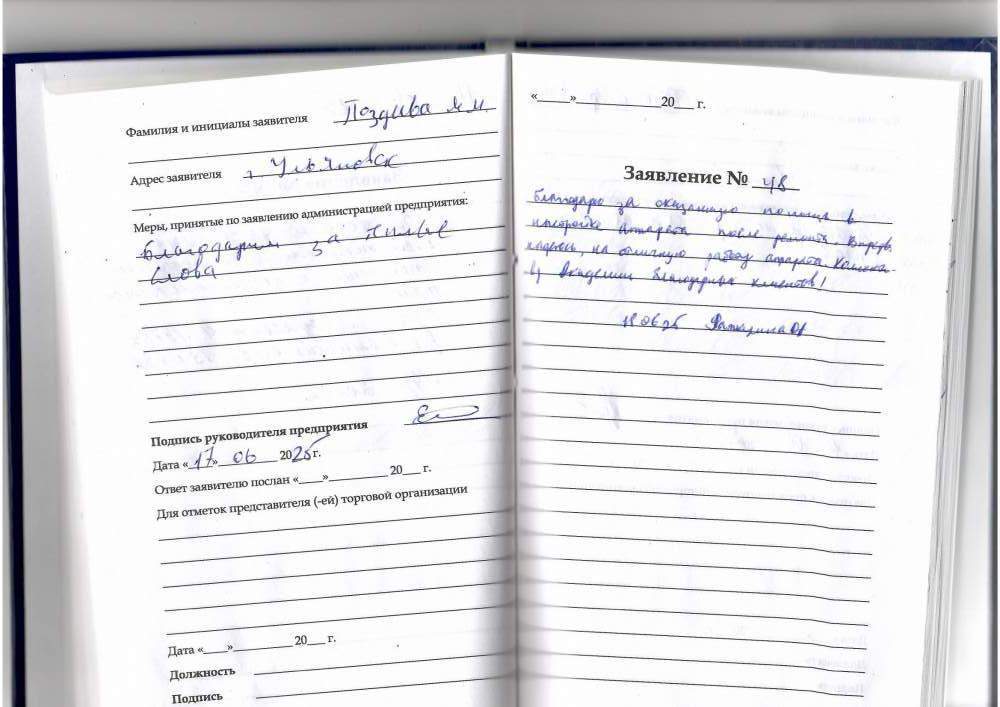 Фамилия и инициалы заявителя Поздива М.И
Адрес заявителя г. Ульяновск
Меры, принятые по заявлению администрацией предприятия:
Благодарим за тёплые
слова
Подпись руководителя предприятия
Дата «17» 06 2025г.
Ответ заявителю послан «____»__________ 20___ г.
Для отметок представителя (-ей) торговой организации
Дата «____»__________ 20___ г.
Должность
Подпись
«_____»______________20___ г.
Заявление № 48
Благодарю за оказанную помощь в
настройке аппарата после ремонта.
надеюсь, на отличную работу аппарата
Академии благодарных клиентов!
18.06.25